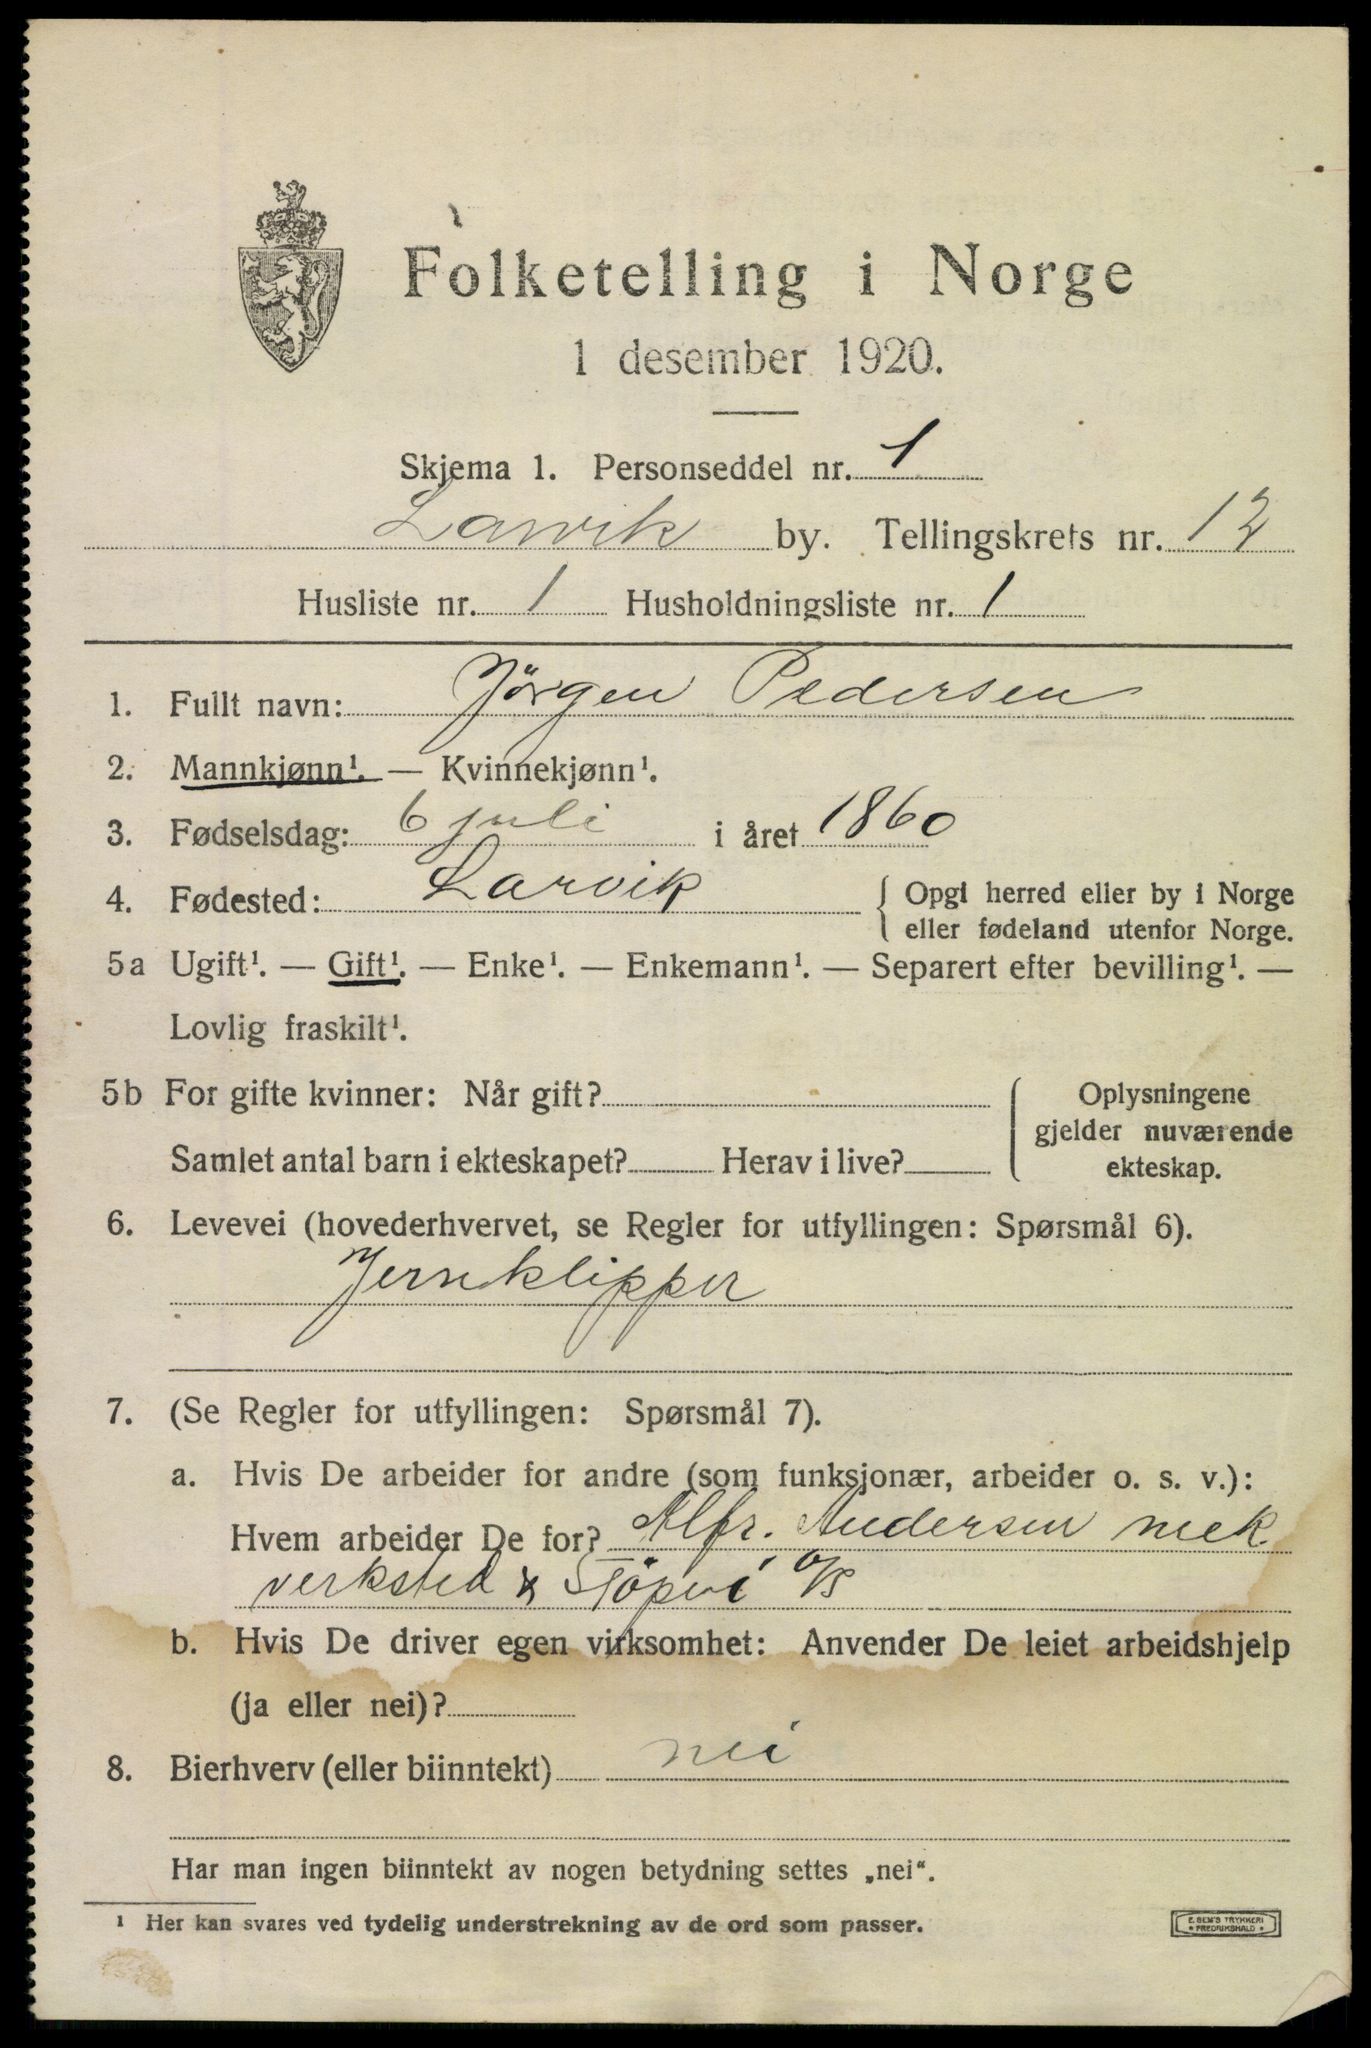 Folketelling i Norge
1 desember 1920.
Skjema 1. Personseddel nr. 1
Larvik by. Tellingskrets nr. 12
Husliste nr. 1 Husholdningsliste nr. 1
1. Fullt navn: Jörgen Pedersen
2. Mannkjønn¹. — Kvinnekjønn¹.
3. Fødselsdag: 6 juli i året 1860
4. Fødested: Larvik { Opgi herred eller by i Norge
eller fødeland utenfor Norge.
5a Ugift¹. — Gift¹. — Enke¹. — Enkemann¹. — Separert efter bevilling¹. —
Lovlig fraskilt¹.
5b For gifte kvinner: Når gift? Oplysningene
gjelder nuværende
Samlet antal barn i ekteskapet? Herav i live? ekteskap.
6. Levevei (hovederhvervet, se Regler for utfyllingen: Spørsmål 6).
Jernklipper
7. (Se Regler for utfyllingen: Spørsmål 7).
a. Hvis De arbeider for andre (som funksjonær, arbeider o. s. v.):
Hvem arbeider De for? Alfr. Andersen mek
verksted & Støperi A/S
b. Hvis De driver egen virksomhet: Anvender De leiet arbeidshjelp
(ja eller nei)?
8. Bierhverv (eller biinntekt) nei
Har man ingen biinntekt av nogen betydning settes „nei“.
¹ Her kan svares ved tydelig understrekning av de ord som passer.
E. SEM'S TRYKKERI
* FREDRIKSHALD *